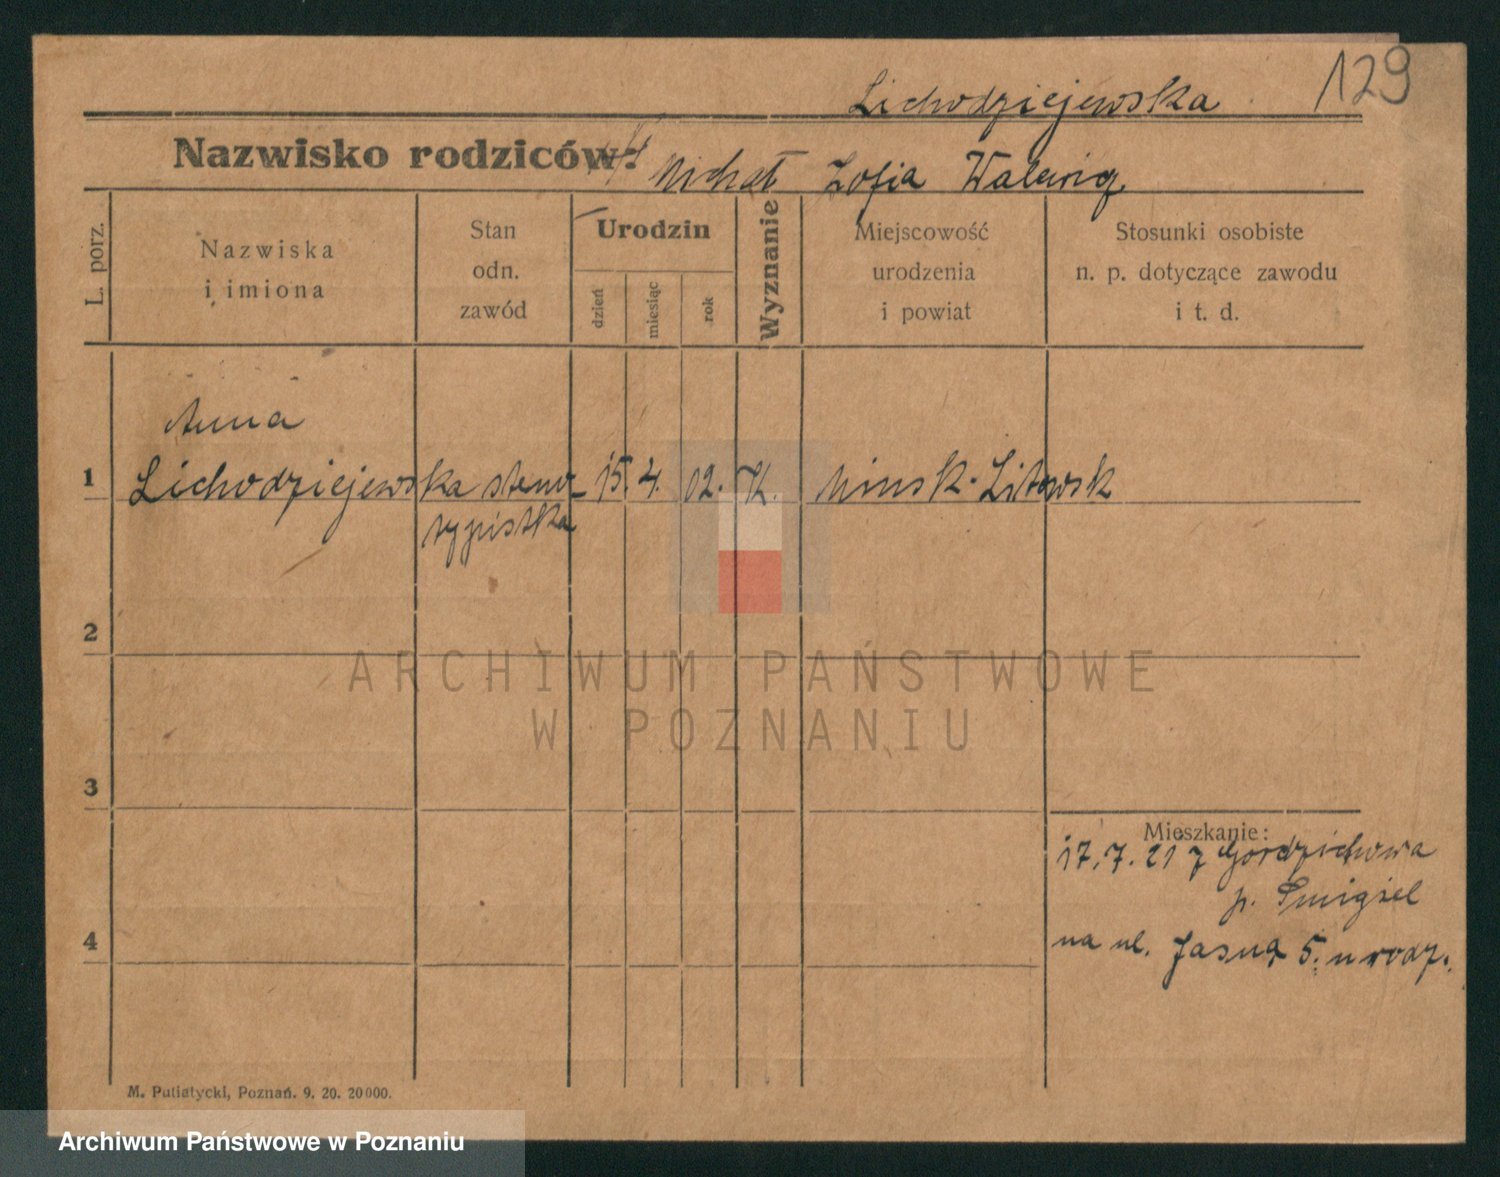 129
Lichodziejewska
Nazwisko rodziców: Michał Zofia
L. porz.
Nazwiska
i imiona
Stan
odn.
zawód
Urodzin
dzień
miesiąc
rok
Wyznanie
Miejscowość
urodzenia
i powiat
Stosunki osobiste
n. p. dotyczące zawodu
i t. d.
Anna
1 Lichodziejewska steno- 15. 4. 02. K. Minsk-Litewsk
typistka
2
3
4
Mieszkanie:
17.7.21 z
p. Śmigiel
na ul. Jasną 5. u rodz.
M. Putiatycki, Poznań. 9. 20. 20000.
ARCHIWUM PAŃSTWOWE
W POZNANIU
Archiwum Państwowe w Poznaniu